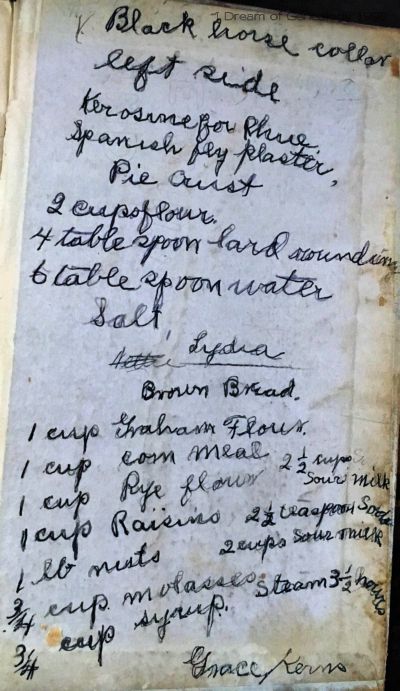 I Dream of Genealogy
Black horse collar
left side
Kerosine for Rhue.
Spanish fly plaster.
Pie Crust
2 cups flour.
4 table spoon lard rounding
6 table spoon water
Salt,
Lydia
Brown Bread.
1 cup Graham Flour.
1 cup corn meal
1 cup Rye flour 2 1/2 cups
sour milk
1 cup Raisins 2 1/2 teaspoon Soda
1 lb nuts 2 cups sour milk
3/4 cup molasses. Steam 3 1/2 hours
3/4 cup syrup.
Grace Kerns